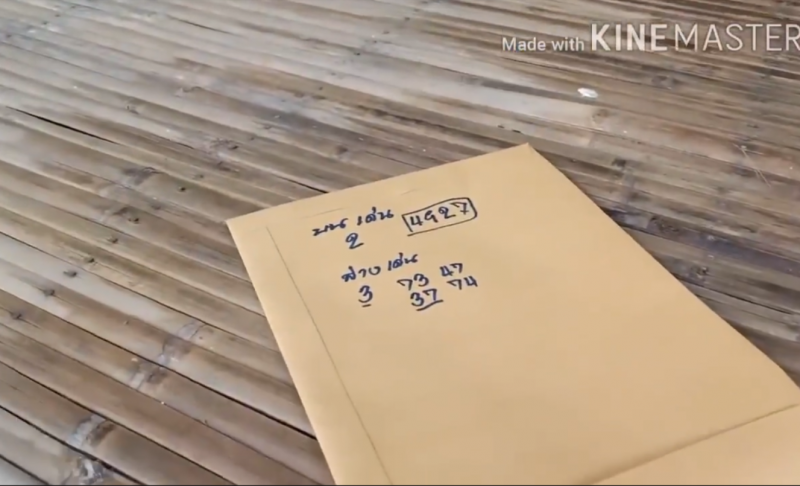 Made with KINEMASTER
บน เด่น 4927
2
ล่าง เด่น
3 73 47
37 74